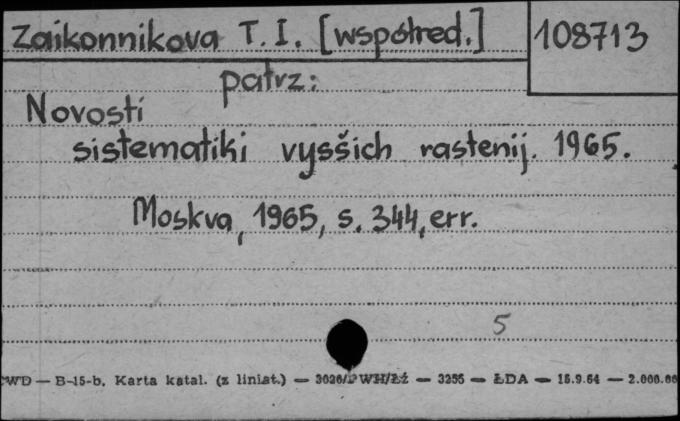 Zaikonnikova T. I. [współred.] 108713
patrz:
Novosti
sistematiki vysšich rastenij. 1965.
Moskva, 1965, s. 344, err.
5
CWD — B-15-b. Karta katal. (z liniat.) — 3026/PWH/Łź — 3255 — ŁDA — 15.9.64 — 2.000.00